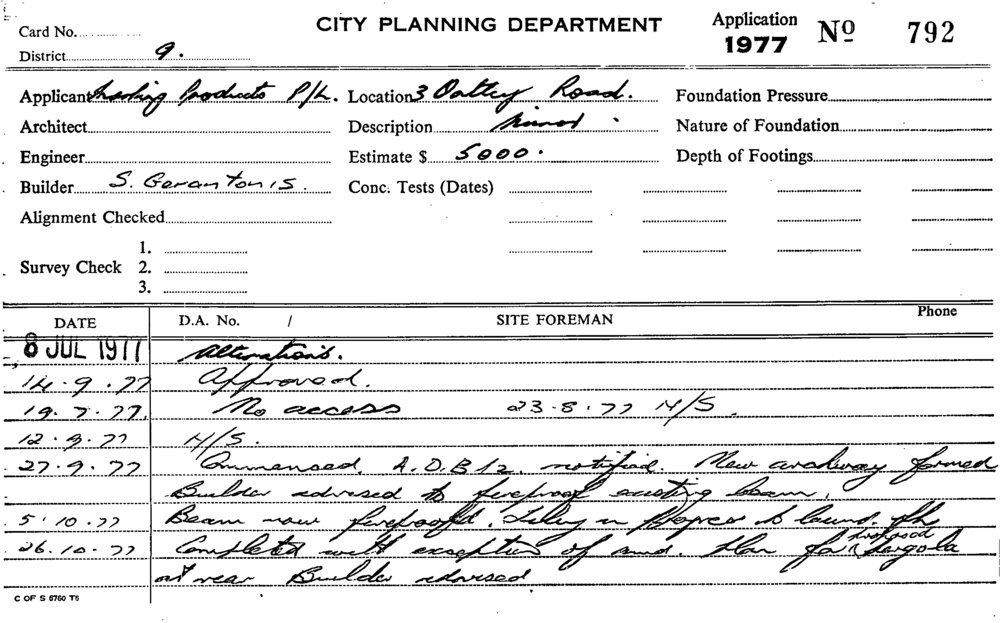 Card No.
CITY PLANNING DEPARTMENT
Application 1977 No 792
District 9.
Applicant Products P/L. Location 3 Oatley Road. Foundation Pressure
Architect Description Minor Nature of Foundation
Engineer Estimate $ 5000. Depth of Footings
Builder S. Gerantonis. Conc. Tests (Dates)
Alignment Checked
1.
Survey Check 2.
3.
DATE D.A. No. / SITE FOREMAN Phone
8 JUL 1977 Alterations.
14.9.77 Approved.
19.7.77. No access 23.8.77 N/S.
12.9.77 N/S.
27.9.77 Commenced. notified. New archway formed
Builder advised to fireproof existing beam.
5.10.77 Beam now fireproofed. in progress to
26.10.77 Completed with exception of amd. Plan for proposed Pergola
at rear Builder advised
C OF S 6760 T6